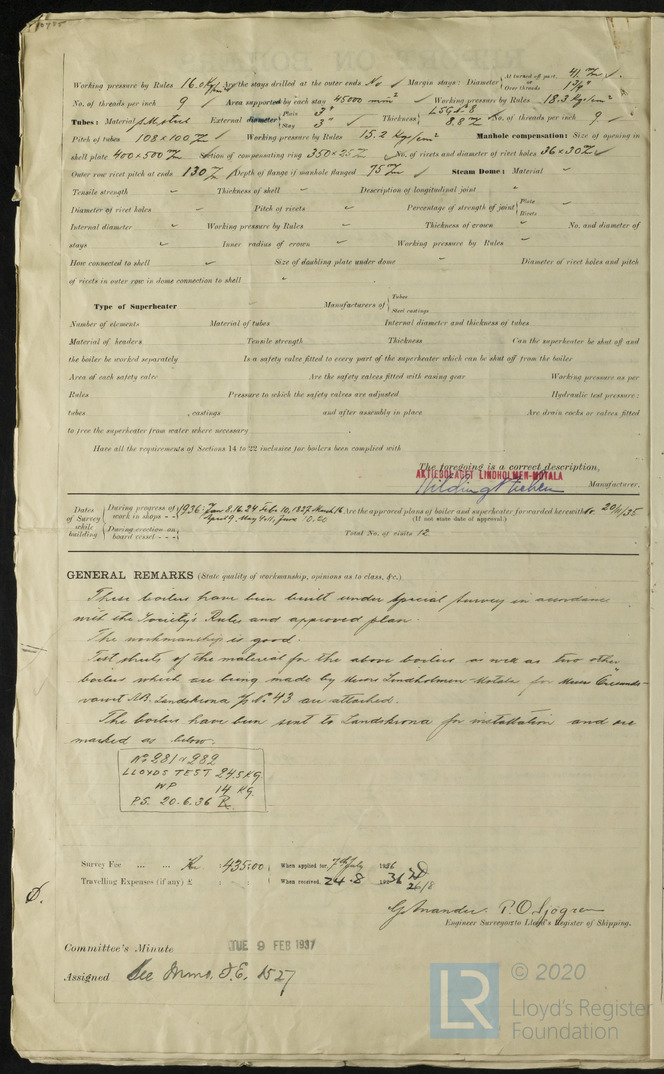 Working pressure by Rules 16.0 Kg/cm² Are the stays drilled at the outer ends No Margin stays: Diameter { At turned off part, or Over threads
No. of threads per inch 9 Area supported by each stay 45000 mm² Working pressure by Rules 18.3 Kg/cm²
Tubes: Material S.M. steel External diameter { Plain 3" Stay 3" Thickness { LSG No 8 8.8 No. of threads per inch 9
Pitch of tubes 108 x 100 Working pressure by Rules 15.2 Kg/cm² Manhole compensation: Size of opening in
shell plate 400 x 500 Section of compensating ring 350 x 25 No. of rivets and diameter of rivet holes 36 x 30
Outer row rivet pitch at ends 130 Depth of flange if manhole flanged 75 Steam Dome: Material -
Tensile strength - Thickness of shell - Description of longitudinal joint
Diameter of rivet holes - Pitch of rivets - Percentage of strength of joint { Plate Rivets -
Internal diameter - Working pressure by Rules - Thickness of crown - No. and diameter of
stays - Inner radius of crown - Working pressure by Rules -
How connected to shell - Size of doubling plate under dome - Diameter of rivet holes and pitch
of rivets in outer row in dome connection to shell -
Type of Superheater - Manufacturers of { Tubes Steel castings
Number of elements Material of tubes Internal diameter and thickness of tubes
Material of headers Tensile strength Thickness Can the superheater be shut off and
the boiler be worked separately Is a safety valve fitted to every part of the superheater which can be shut off from the boiler
Area of each safety valve Are the safety valves fitted with easing gear Working pressure as per
Rules Pressure to which the safety valves are adjusted Hydraulic test pressure:
tubes , castings and after assembly in place Are drain cocks or valves fitted
to free the superheater from water where necessary
Have all the requirements of Sections 14 to 22 inclusive for boilers been complied with
The foregoing is a correct description,
AKTIEBOLAGET LINDHOLMEN-MOTALA
Manufacturer.
Dates of Survey while building { During progress of work in shops - - 1936: Jan 8, 16, 24 Feb. 10, 18, 27, March 16 April 9, May 4, 11, June 10, 20 Are the approved plans of boiler and superheater forwarded herewith 20/11/35
(If not state date of approval.)
During erection on board vessel - - - Total No. of visits 12.
GENERAL REMARKS (State quality of workmanship, opinions as to class, &c.)
These boilers have been built under special survey in accordance
with the Society's Rules and approved plan.
The workmanship is good.
Test sheets of the material for the above boilers as well as two other
boilers which are being made by Messrs Lindholmen-Motala for Messrs Öresunds-
varvet AB. Landskrona No. 43 are attached.
The boilers have been sent to Landskrona for installation and are
marked as below.
No 281 & 282
LLOYDS TEST 24.5 KG
WP 14 KG.
P.S. 20.6.36
Survey Fee ... ... Kr. : 435:00 When applied for, 7th July 1936
Travelling Expenses (if any) £ : : When received, 24.8 1936 26/8
P.O. Sjögren
Engineer Surveyor to Lloyd's Register of Shipping.
Committee's Minute TUE 9 FEB 1937
Assigned See Mmo. F.E. 1527
LR © 2020
Lloyd's Register
Foundation